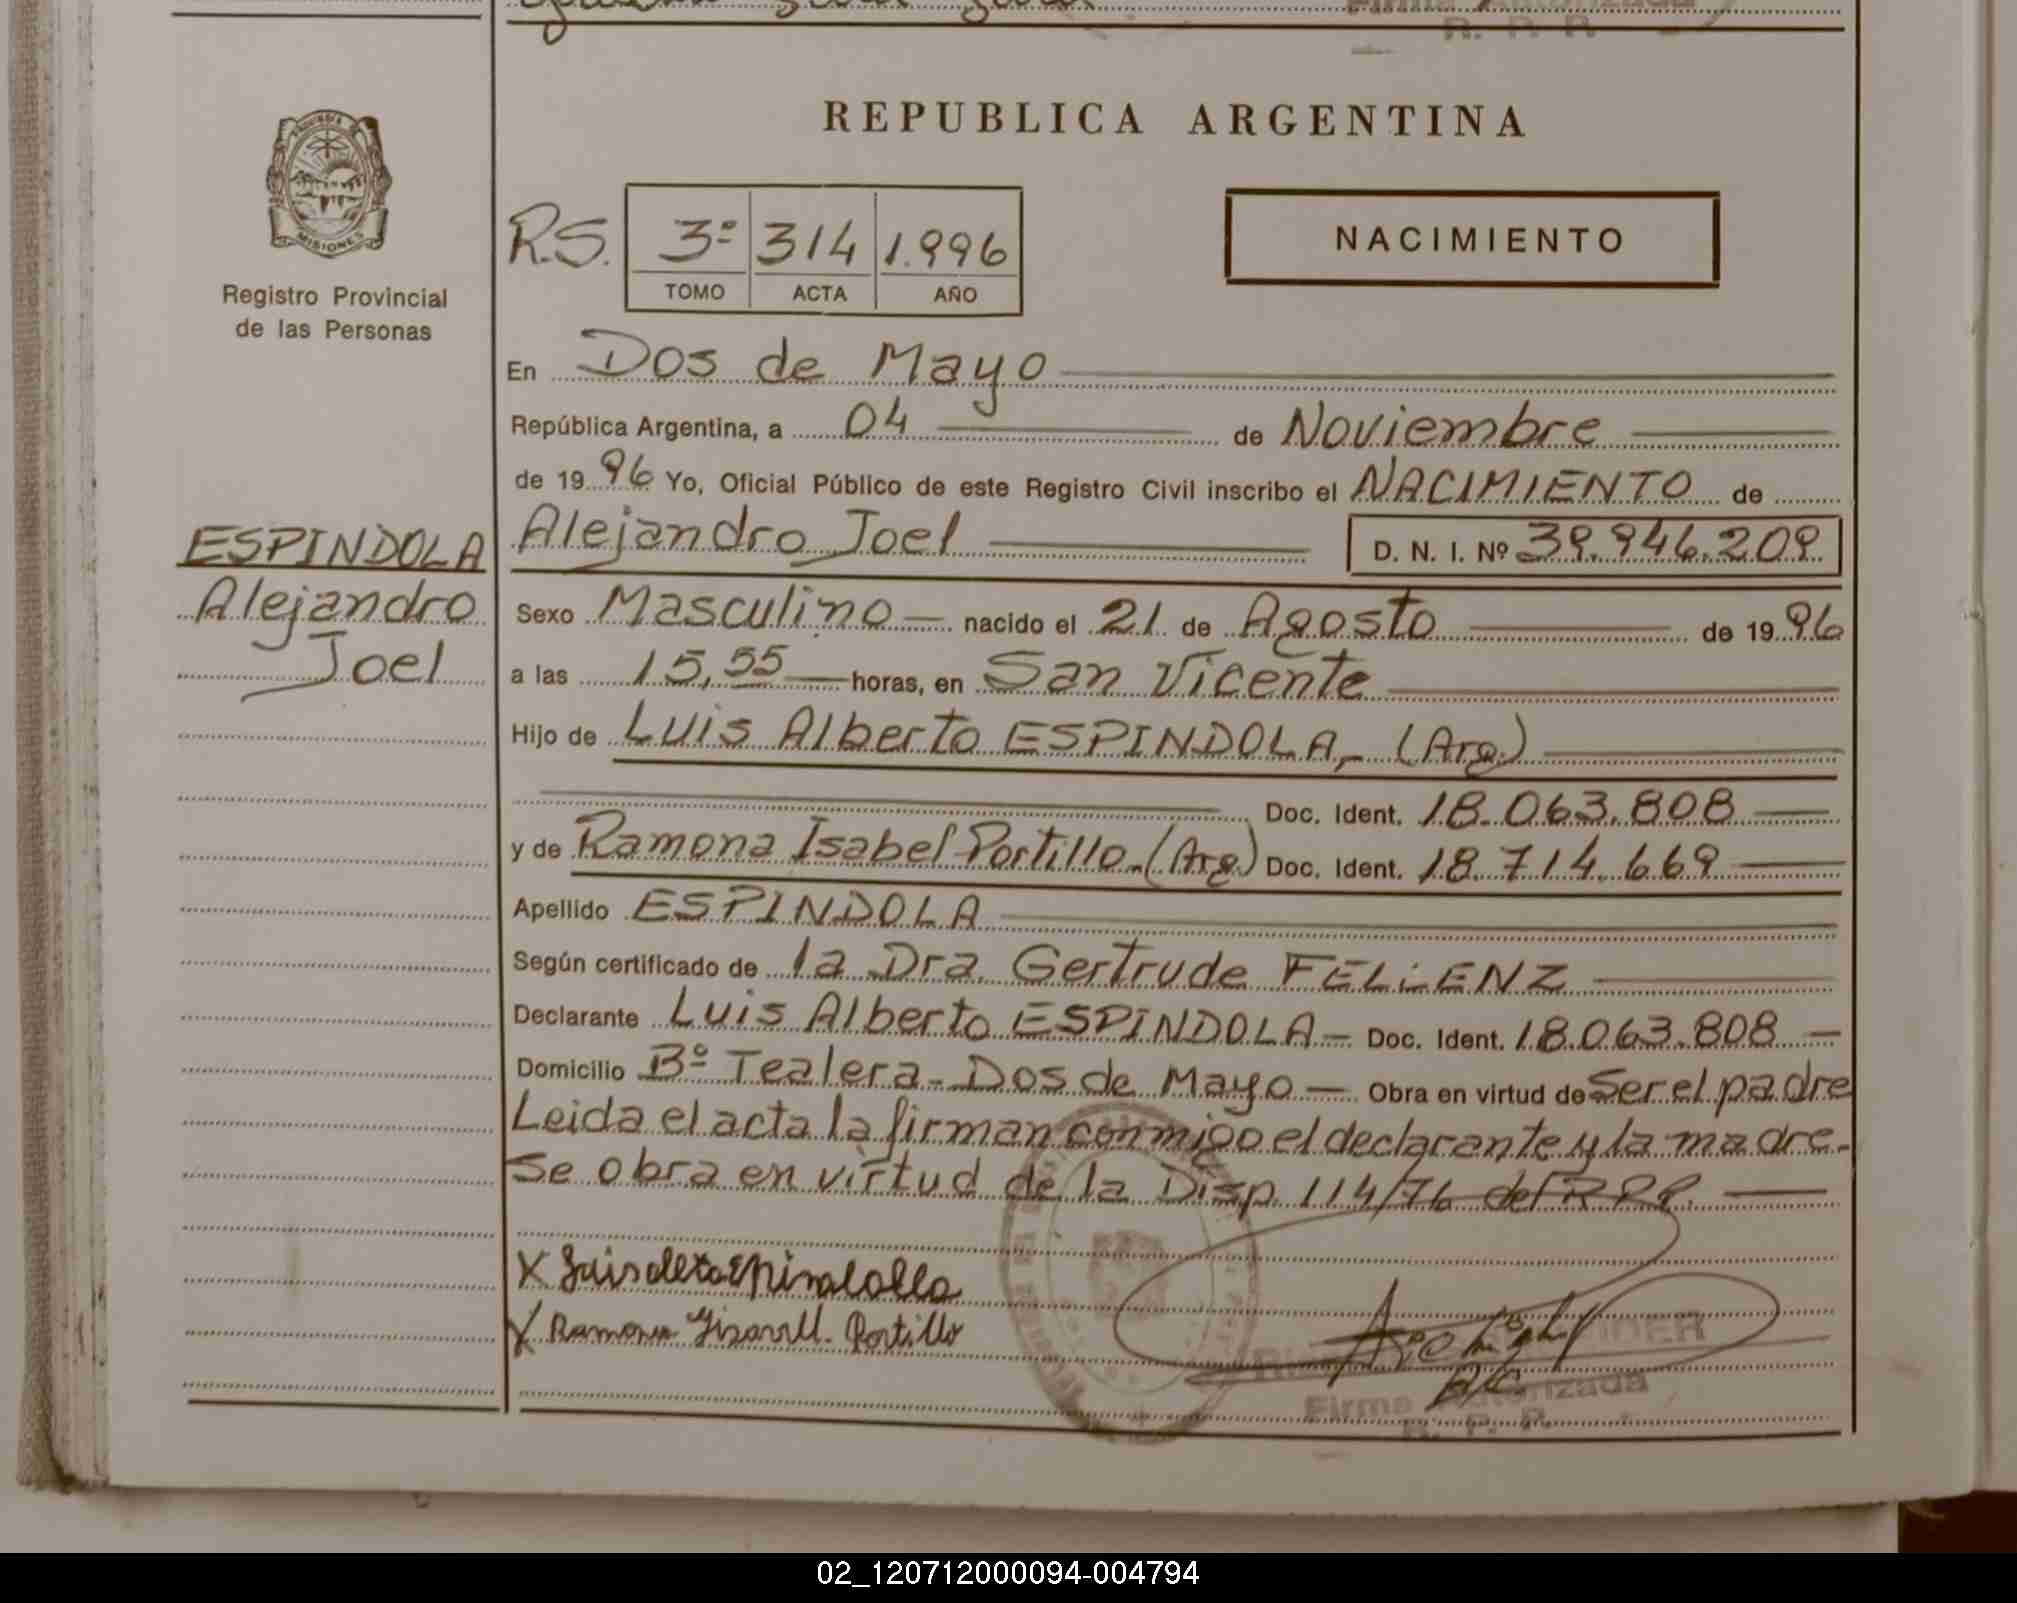 REPUBLICA ARGENTINA
MISIONES
Registro Provincial
de las Personas
R.S. 3º 314 1.996
TOMO ACTA AÑO
NACIMIENTO
En Dos de Mayo
República Argentina, a 04 de Noviembre
de 19 96 Yo, Oficial Público de este Registro Civil inscribo el NACIMIENTO de
ESPINDOLA
Alejandro
Joel
Alejandro Joel D. N. I. Nº 39.946.209
Sexo Masculino nacido el 21 de Agosto de 19 96
a las 15,55 horas, en San Vicente
Hijo de Luis Alberto ESPINDOLA,- (Arg.)
Doc. Ident. 18.063.808
y de Ramona Isabel Portillo.-(Arg) Doc. Ident. 18.714.669
Apellido ESPINDOLA
Según certificado de la Dra. Gertrude FELiENZ
Declarante Luis Alberto ESPINDOLA Doc. Ident. 18.063.808
Domicilio Bº Tealera- Dos de Mayo Obra en virtud de Ser el padre
Leida el acta la firman conmigo el declarante y la madre.-
Se obra en virtud de la Disp. 114/76 del R.P.P.
X
X Ramona Portillo
Firma Autorizada
R. P. P.
02_120712000094-004794